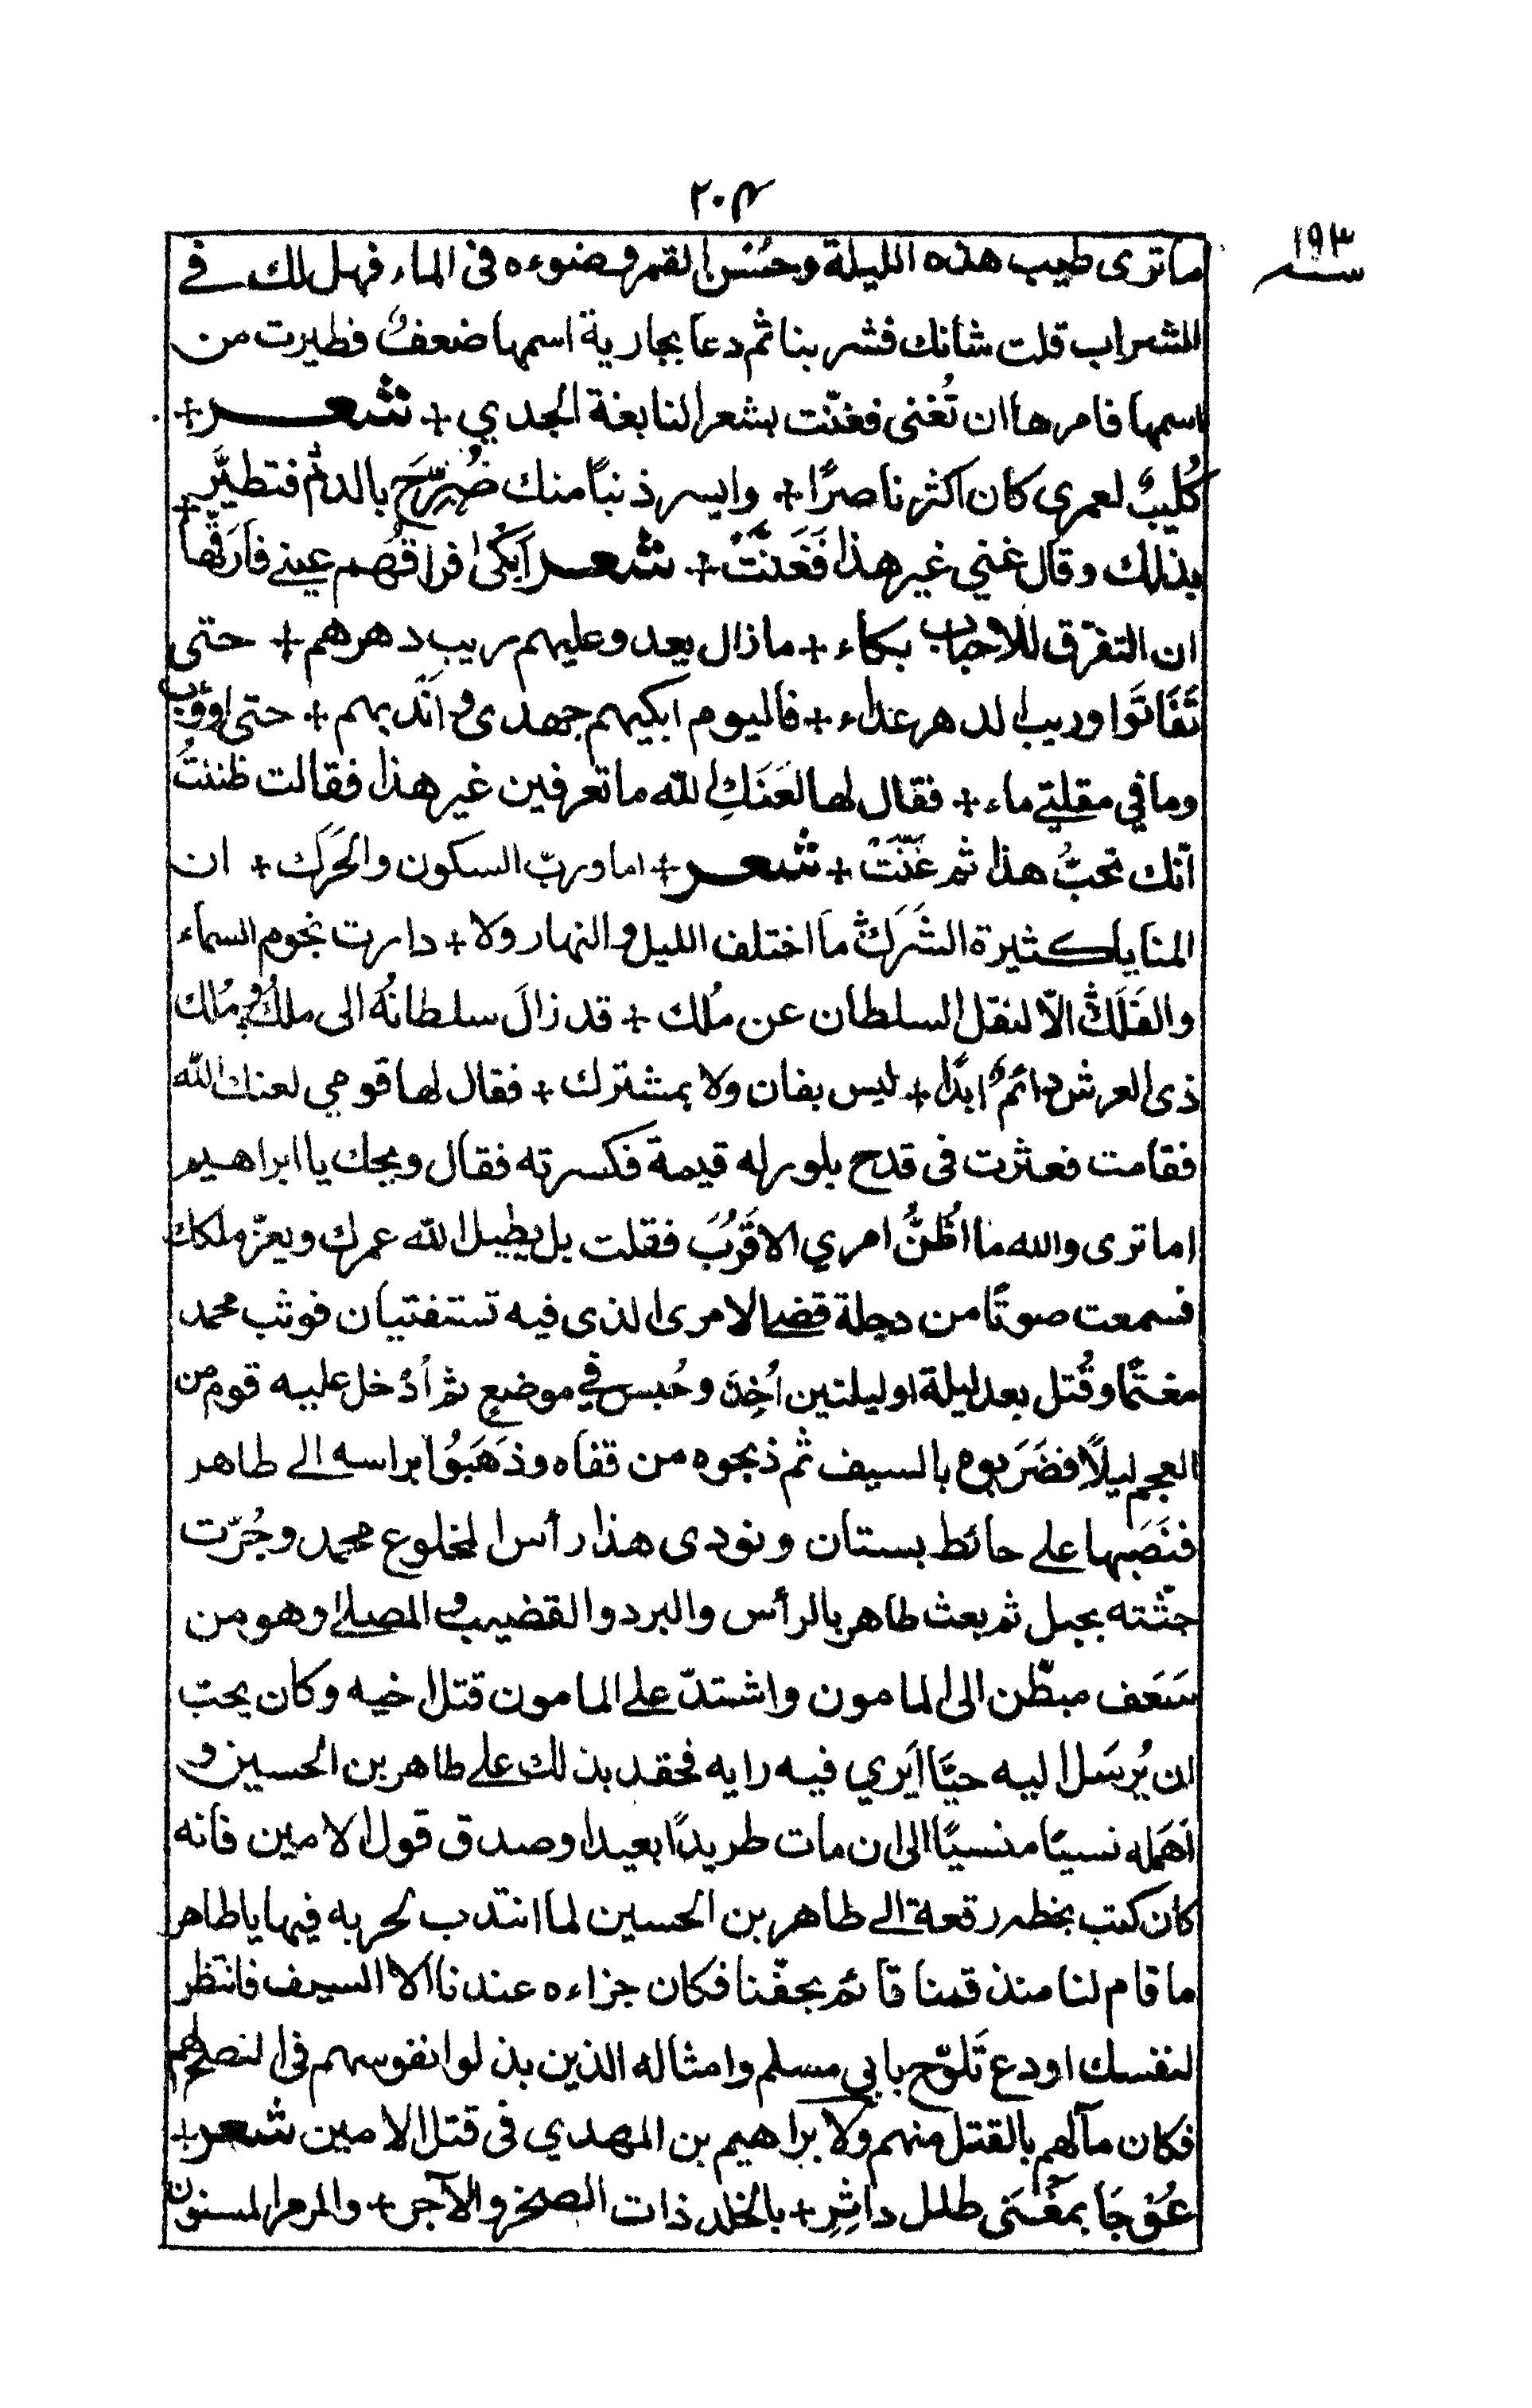 ٢٠٤
١٩٣
سنہ
ما ترى طيب هذه الليلة وحُسْن القمر وضوءه في الماء فهل لك في
الشراب قلت شأنك فشربنا ثم دعا بجارية اسمها ضعفٌ فطيرت من
اسمها فامرها ان تُغنى فغنّت بشعر النابغة الجدي + شعر +
كُليبٌ لعمري كان اكثر ناصرًا + وايسر ذنبًا منك ضُرِّجَ بالدمٌ فتطيّر +
بذلك وقال غني غير هذا فَغَنَّتْ + شعر اَبكٰى فراقُهم عيني فأرّقها
ان التفرّق للاحباب بكاء + ما زال يعد وعليهم ريب دهرهم + حتى
تَفَانَوا وريب الدهر عداء + فاليوم ابكيهم جهدى واندبهم + حتى اووب
وما في مقلتي ماء + فقال لها لعَنَكِ الله ما تعرفين غير هذا فقالت ظننتُ
انّك تحبُّ هذا ثم غَنَّتْ + شعر + اما وربّ السكون والحَرَك + ان
المنايا كثيرة الشَرَك ما اختلف الليل والنهار ولا + دارت نجوم السماء
والفَلَك الّا لنقل السلطان عن مُلك + قد زالَ سلطانُه الى ملكٍ ومُلك
ذى العرش دائمٌ ابدًا + ليس بفان ولا بمشترك + فقال لها قومي لعنك الله
فقامت فعثرت في قدح بلور له قيمة فكسرته فقال ويحك يا ابراهيم
اما ترى والله ما اظُنُّ امري الا قَرُبَ فقلت بل يطيل الله عمرك ويعزّ ملكك
فسمعت صوتًا من دجلة قضى الامرى الذى فيه تستفتيان فوثب محمد
مغتمًا وقُتل بعد ليلة او ليلتين اُخِذَ وحُبس في موضع ثم اُدْخل عليه قوم من
العجم ليلًا فضَرَبوه بالسيف ثم ذبحوه من قفاه وذهَبُوا براسه الى طاهر
فنَصَبها على حائط بستان ونودى هذا رأس المخلوع محمد وجُرّت
جثّته بحبل ثم بعث طاهر بالرأس والبرد والقضيب والمصلا وهو من
سَعَف مبطّن الى المامون واشتدّ على المامون قتل اخيه وكان يحب
ان يُرسَل اليه حيًّا ليَري فيه رايه فحقد بذلك على طاهر بن الحسين و
اَهمَله نسيًا منسيًا الى ان مات طريدًا بعيدا وصدق قول الامين فانه
كان كتب بخطه رقعة الى طاهر بن الحسين لما انتدب لحربه فيها يا طاهر
ما قام لنا منذ قمنا قائم بحقّنا فكان جزاءه عندنا الا السيف فانتظر
لنفسك اودع تَلوّح بابي مسلم وامثاله الذين بذلوا نفوسهم في النصح لهم
فكان مآلهم بالقتل منهم ولابراهيم بن المهدي في قتل الامين شعر +
عُوجَا بمَغْنى طلل داثِرِ + بالخلد ذات الصخر والآجر + والمرمر المسنون